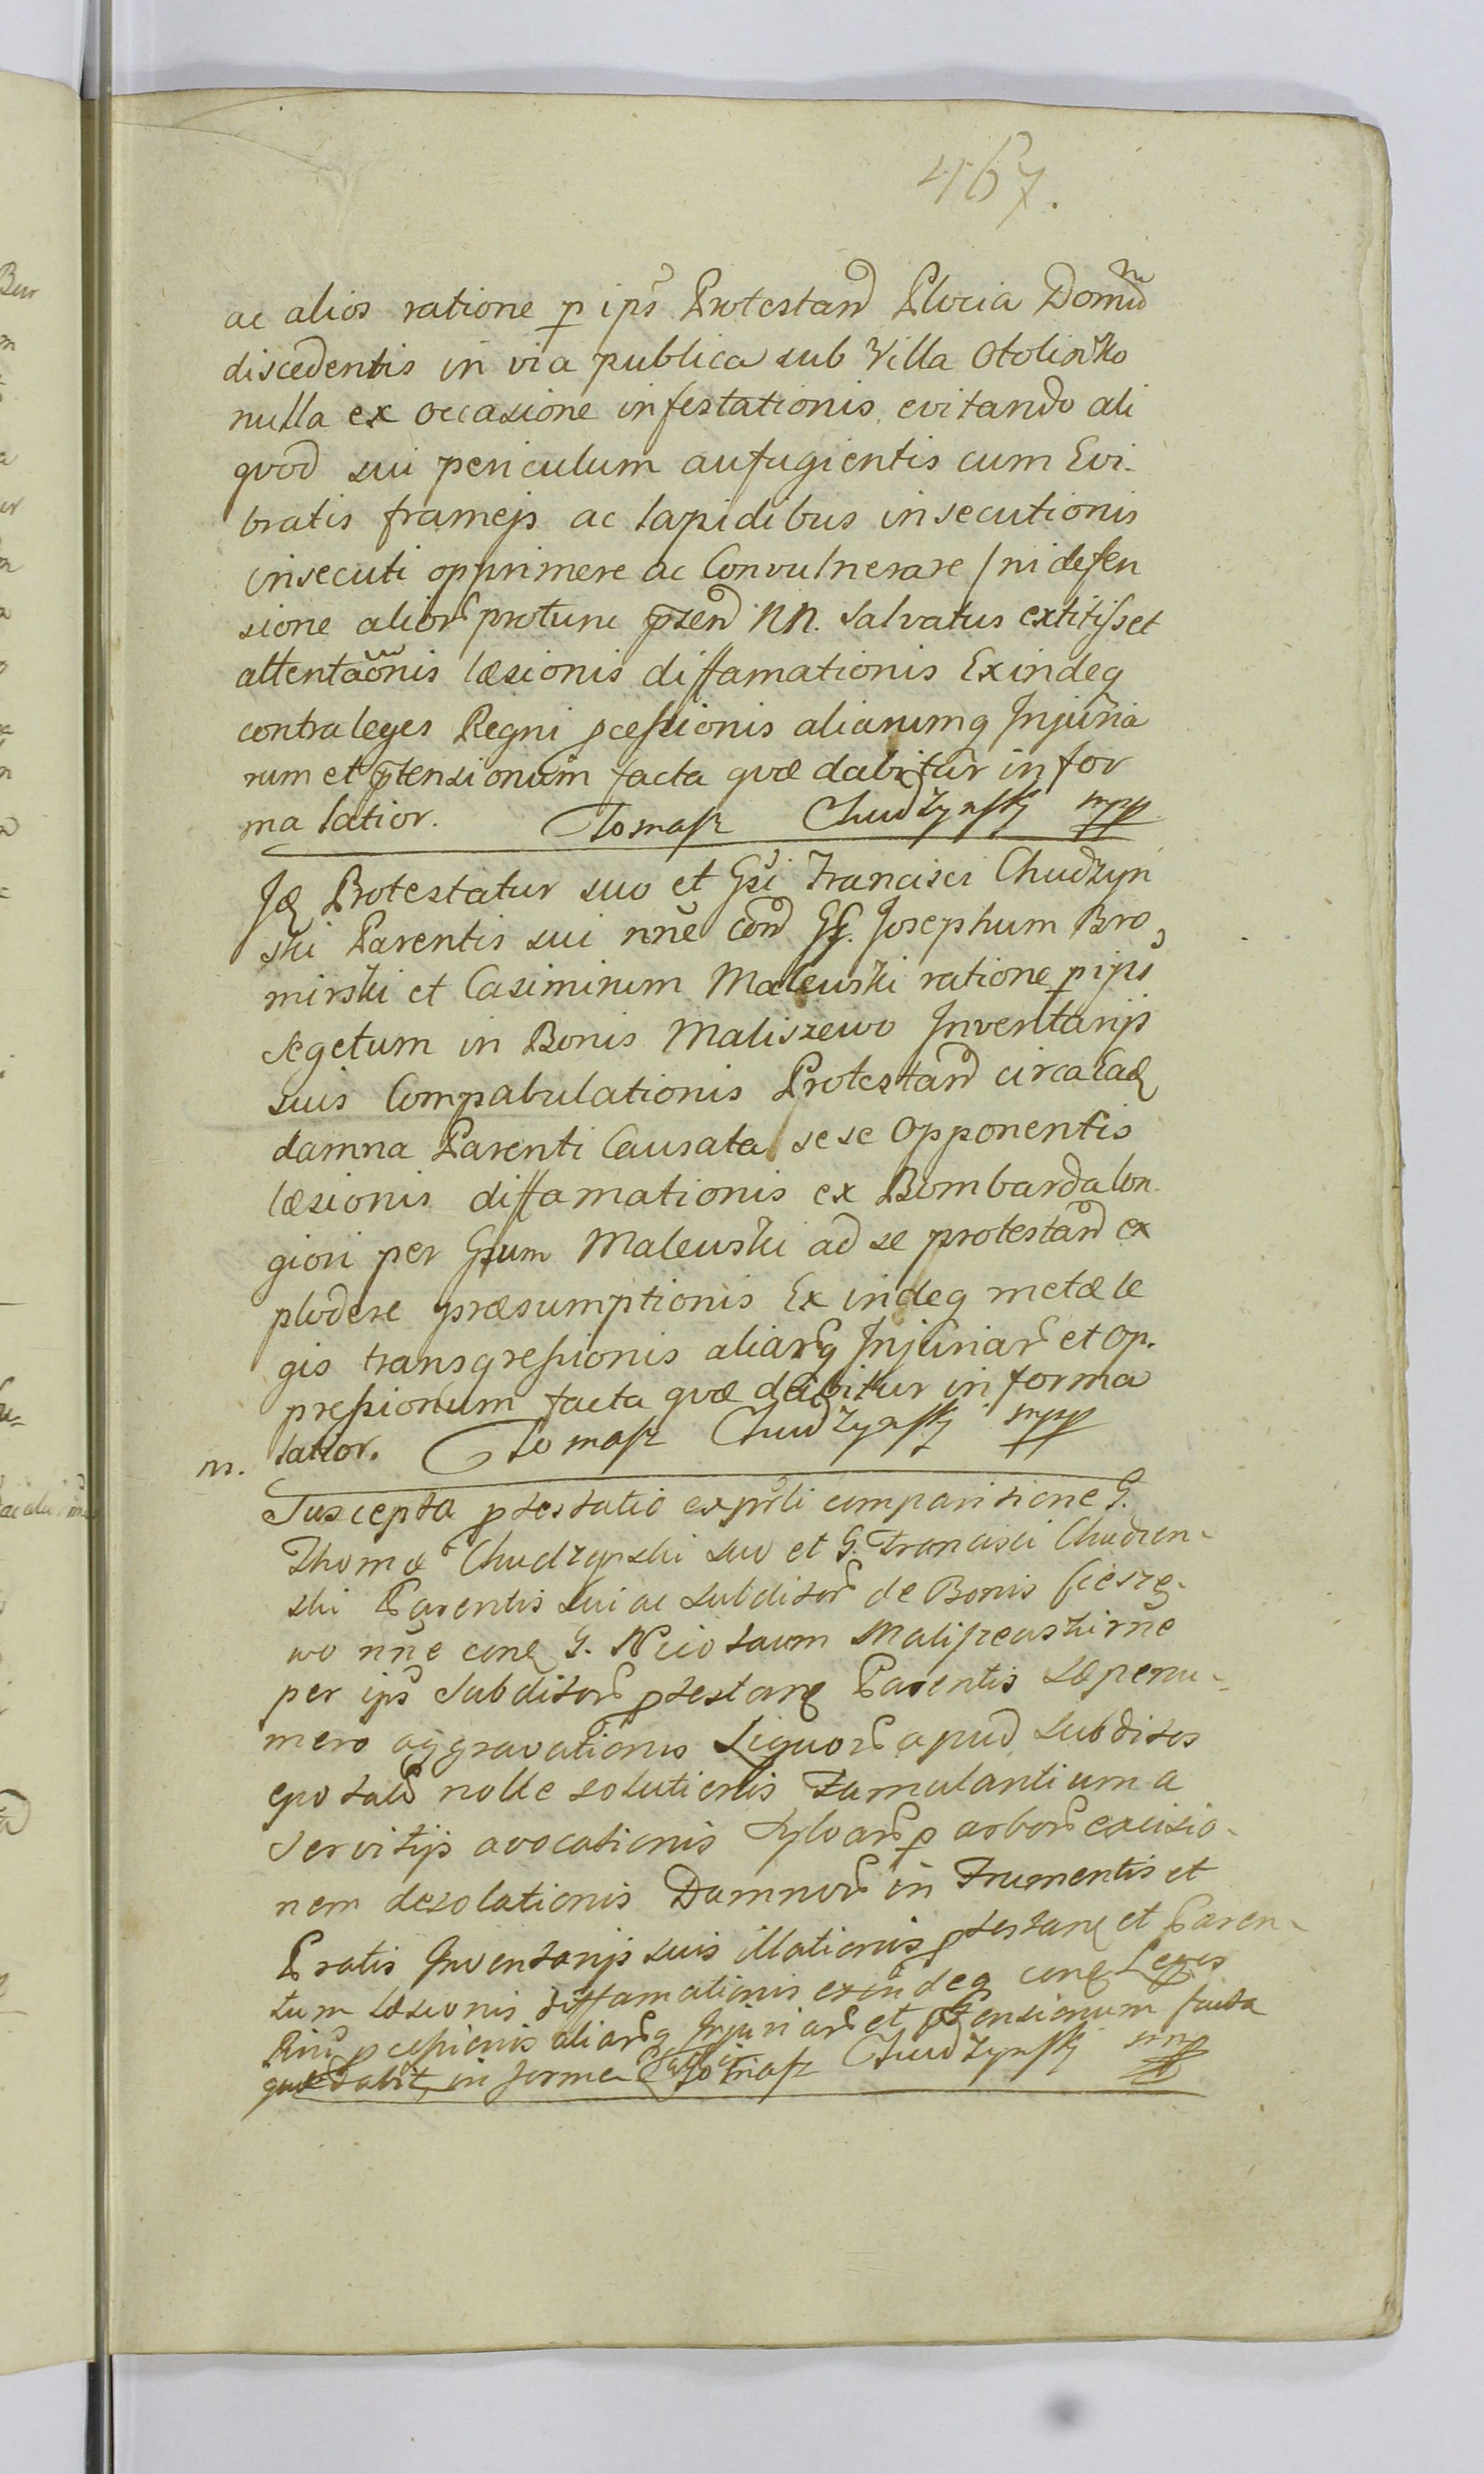 467.
ac alios ratione p ips Protestand Plocia Domũ
discedentis in via publica sub Villa Otolisko
nulla ex occasione infestationis evitando ali
qvod sui periculum aufugientis cum Evi-
bratis framejs ac lapidibus insecutionis
insecuti opprimere ac Convulnerare /ni defen
sione alior protunc pzend NN. Salvatus extitisset
attentaonis læsionis diffamationis Exindeq
contra leges Regni pcessionis aliarumq Injuria
rum et ptensionum facta qvæ dabitur in for
ma latior. Tomasz Chudzynsky mpp
Id Protestatur suo et Gsi Francisci Chudzyn
ski Parentis sui nne cond GG. Josephum Bro
mirski et Casimirum Maleuski ratione p ips
segetum in Bonis Maliszewo Inventarijs
suis Compabulationis Protestand circa Ead
damna Parenti Causata sese Opponentis
læsionis diffamationis ex Bombarda lon
giori per Gsum Maleuski ad se protestand ex
plodere præsumptionis Exindeq metæ le
gis transgressionis aliarq Injuriar et op.
pressionum facta qvæ dabitur in forma
latior. Tomasz Chudzynsky mpp
m.
Suscepta ptestatio expsli comparitione G.
Thomæ Chudzynski suo et G. Francisci Chudzen-
ski Parentis sui ac subditor de Bonis
wo nne cong G.
per ips Subditor ptestang Parentis sæpenu-
mero aggravationis Liquor apud subditos
epotat nolle solutionis Famulantium a
servitijs avocationis sylvar p arbor excisio-
nem desolationis Damnor in Frumentis et
Pratis Inventarijs suis illationis ptestang et Paren-
tum læsionis diffamationis exindeq cong Leges
Rni pcessionis aliarq Injuriar et ptensionum facta
quæ dabit in forma Tomasz Chudzynsky mpp